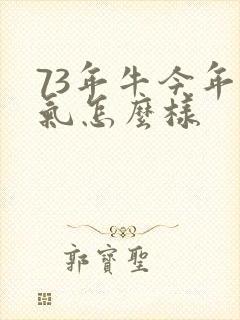 73年牛今年
氣怎麼樣
郭寶聖